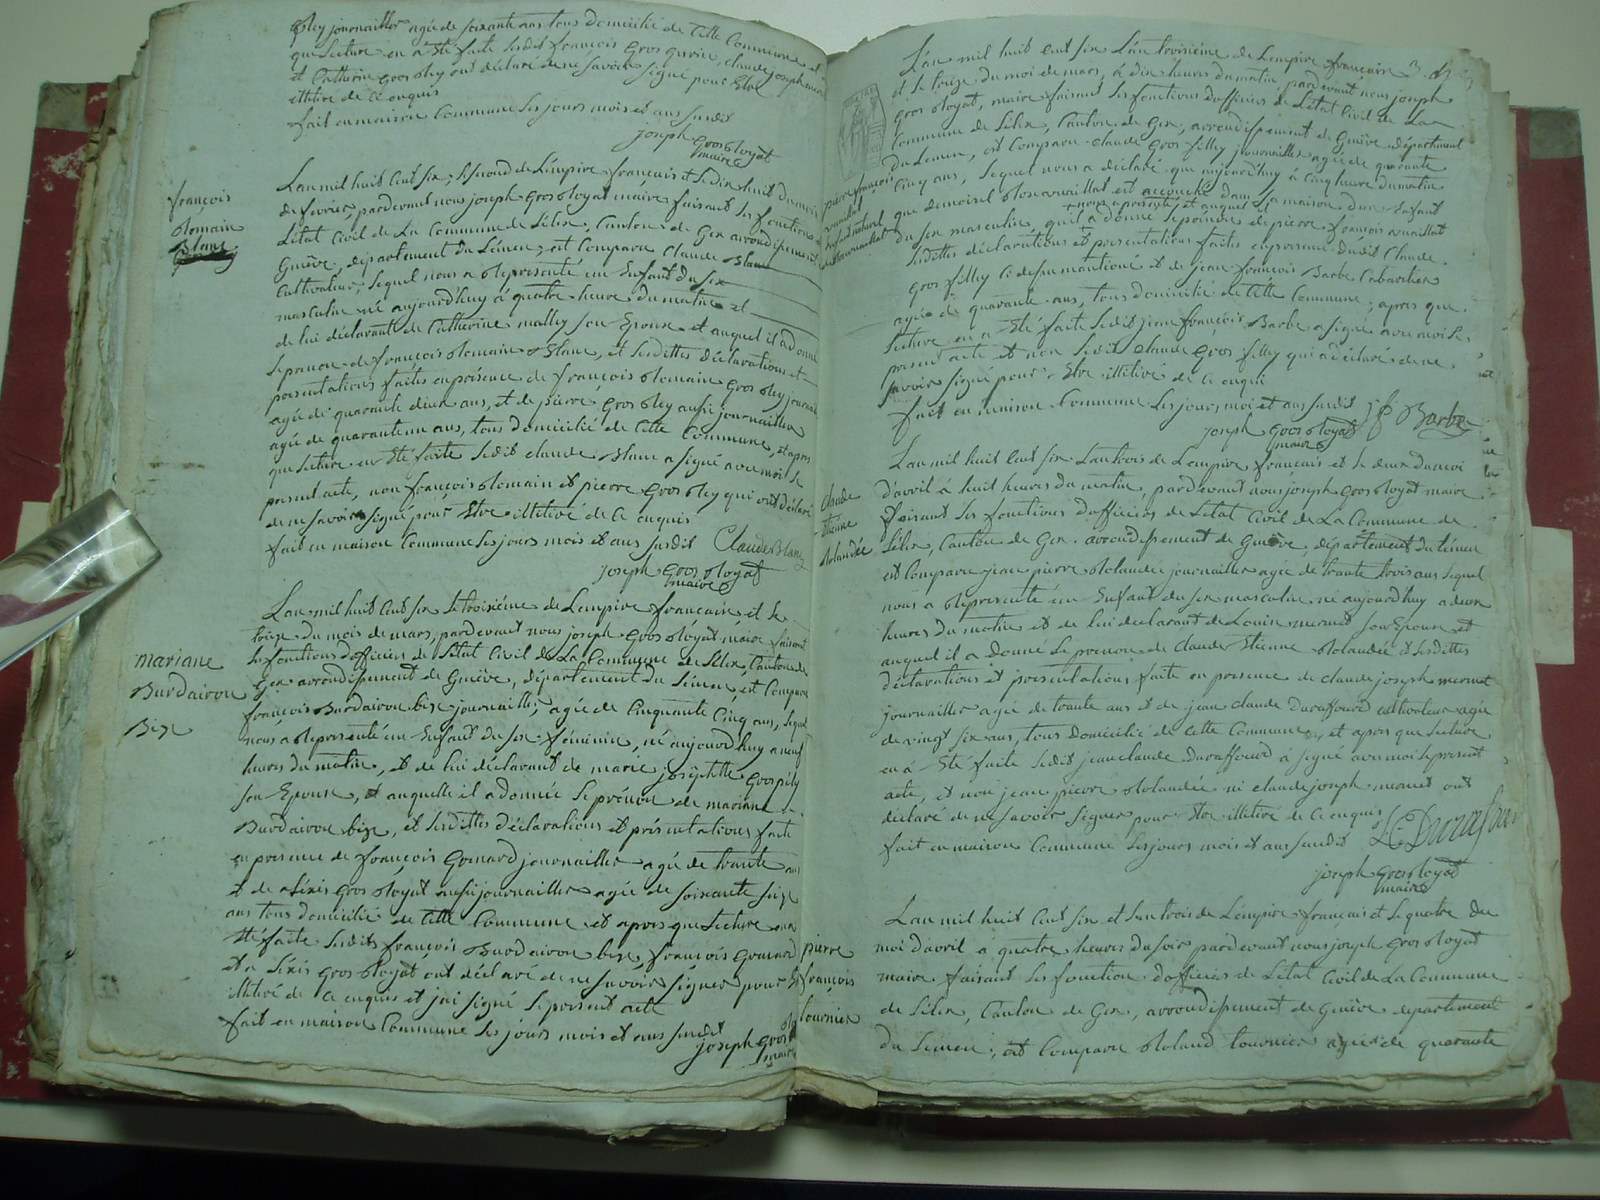 journaillier agée de soixante ans tous domicilié de Cette Commune et
que Lecture en a Eté faite Ledit françois Gros gurin, claude joseph
et Catherin Gros Rey ont déclaré de ne Savoir Signé pour Etre
illitivé de Ce enquis
fait en maison Commune Les jours mois et ans Susdit
joseph Gros Royat
maire
françois
Romain
Blanc
Lan mil huit Cent Six, Le Second de L'émpire français et Le dix huit du mois
de fevrier, pardevant nous joseph Gros Royat maire faisant Les fonctions
L'état Civil de La Commune de Lélex, Canton de Gex arrondisement
Genêve, département du Léman, est Comparu Claude Blanc
Cultivateur, Lequel nous a Représenté un Enfant du Sex
masculin né aujourd'huy à quatre heure du matin et
de lui déclarant de Catherine mathy Son Epouse et auquel il a donné
Le prenon de françois Romain Blanc, et Lesdittes déclarations et
présentations faites en présence de françois Romain Gros Rey journaill
agée de quarante deux ans, et de pierre Gros Rey aussi journaillier
agée de quarante un ans, tous domicilié de Cette Commune, et apres
que Lecture en Eté faite Ledit claude Blanc a Signé avec moi Le
present acte, non françois Romain et pierre Gros Rey qui ont déclaré
de ne Savoir Signé pour Etre illitivé de Ce enquis
fait en maison Commune Les jours mois et ans Susdit Claude Blanc
joseph Gros Royat
maire
mariane
Burdairon
Bize
Lan mil huit Cent Six Le troisiéme de Lempire francais, et Le
treize du mois de mars, pardevant nous joseph Gros Royat maire faisant
Les fonctions d'officier de L'état Civil de La Commune de Lélex, Canton de
Gex arrondisement de Genêve, département du Léman, est Comparu
françois Burdairon bize journaillier, agée de Cinquante Cinq ans, Lequel
nous a Représenté un Enfant du Sex féminin, né aujourd'huy a neuf
heures du matin, et de lui déclarant de marie josephte Gros
Son Epouse, et auquelle il a donnée Le prénon de mariane
Burdairon bize, et Lesdittes déclarations et présentations faite
en presence de françois Gonard journaillier agée de trante ans
et de aléxis Gros Royat aussi journaillier agée de Soixante Seize
ans tous domicilié de Cette Commune et apres que Lecture en a
Eté faite Lesdits françois Burdairon bize, françois Gonard
et a Léxis Gros Royat ont déclaré de ne Savoir Signer pour Etre
illitivé de Ce enquis et j'ai Signé Le present acte
fait en maison Commune Les jours mois et ans Susdit
joseph Gros
maire
L'an mil huit Cent Six L'an troisiéme de L'empire françaises
et Le treize du moi de mars, à dix heurs du matin pardevant nous joseph
Gros Royat, maire faisant Les fonctions d'officier de L'état Civil de La
Commune de Lélex, Canton de Gex, arrondisement de Genêve, département
du Léman, est Comparu claude Gros filley journaillier agée de quarante
Cinq ans, Lequel nous a déclaré que aujourdhuy à Cinq heure du matin
que demoisel Rose vuaillat est accouché dans Sa maison d'un Enfant
+ nous a presenté, et auquel
du Sex masculin, qu'il a donné Le prénon de pierre françois vuaillat
pierre françois
vuaillat
enfant naturel
Lesdittes déclarations et presentations faites en presence dudit Claude
Gros filley Ce dessu mantioné et de jean françois Barbe Cabaretier
agée de quarante ans, tous domicilié de Cette Commune, apres que
Lecture en a Eté faite Ledit jean françois Barbe a Signé avec moi Le
present acte et non Ledit Claude Gros filley qui a déclaré de ne
Savoir Signé pour Etre illitivé de Ce enqui
fait en maison Commune Les jour, moi et ans Susdit jf Barbe
joseph Gros Royat
maire
Claude
Etienne
Rolandée
Lan mil huit Cent Six Lantrois de L'empire francais et Le deux du moi
d'avril à huit heures du matin, pardevant nous joseph Gros Royat maire
faisant Les fonctions d'officier de L'état Civil de La Commune de
Lélex, Canton de Gex, arrondisement de Genêve, département du Léman
est Comparu jean pierre Rolandée journaillier agée de trante trois ans Lequel
nous a Représenté un Enfant du Sex masculin né aujourd'huy a deux
heures du matin et de lui déclarant de Louise mermet Son Epouse et
auquel il a donné Le prenon de claude Etienne Rolandée et Lesdittes
déclarations et présentations faite en presence de claude joseph mermet
journaillier agée de trante ans et de jean claude Duraffourd cultivateur agée
de vingt Six ans, tous Domicilié de Cette Commune, et apres que Lecture
en à Eté faite Ledit jean claude Duraffourd à Signé avec moi Le present
acte, et non jean pierre Rolandée ni claude joseph mermet ont
déclaré de ne Savoir Signer pour Etre illitivé de Ce enquis
fait en maison Commune Les jours mois et ans Susdit J.C. Duraffour
joseph Gros Royat
maire
pierre
françois
tournier
Lan mil huit Cent Six et Lantrois de L'émpire français et Le quatre du
moi d'avril a quatre heures du Soir pardevant nous joseph Gros Royat
maire faisant Les fonction d'officier de L'état Civil de La Commune
de Lélex, Canton de Gex, arrondisement de Genêve departement
du Léman, est Comparu Roland tournier agée de quarante